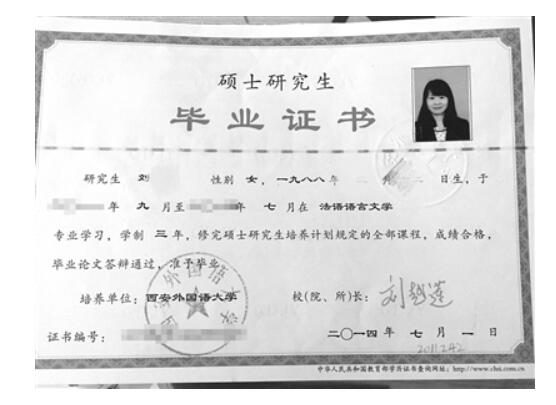 硕士研究生
毕业证书
研究生 刘 性别 女，一九八八年 月 日生，于
年 九 月至 年 七 月在 法语语言文学
专业学习，学制 三 年，修完硕士研究生培养计划规定的全部课程，成绩合格，
毕业论文答辩通过，准予毕业。
培养单位：西安外国语大学 校(院、所)长：刘越莲
证书编号： 二〇一四 年 七 月 一 日
2011242
中华人民共和国教育部学历证书查询网址：http://www.chsi.com.cn